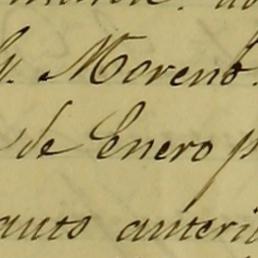 y. Moreno.
de Enero p
auto anteri